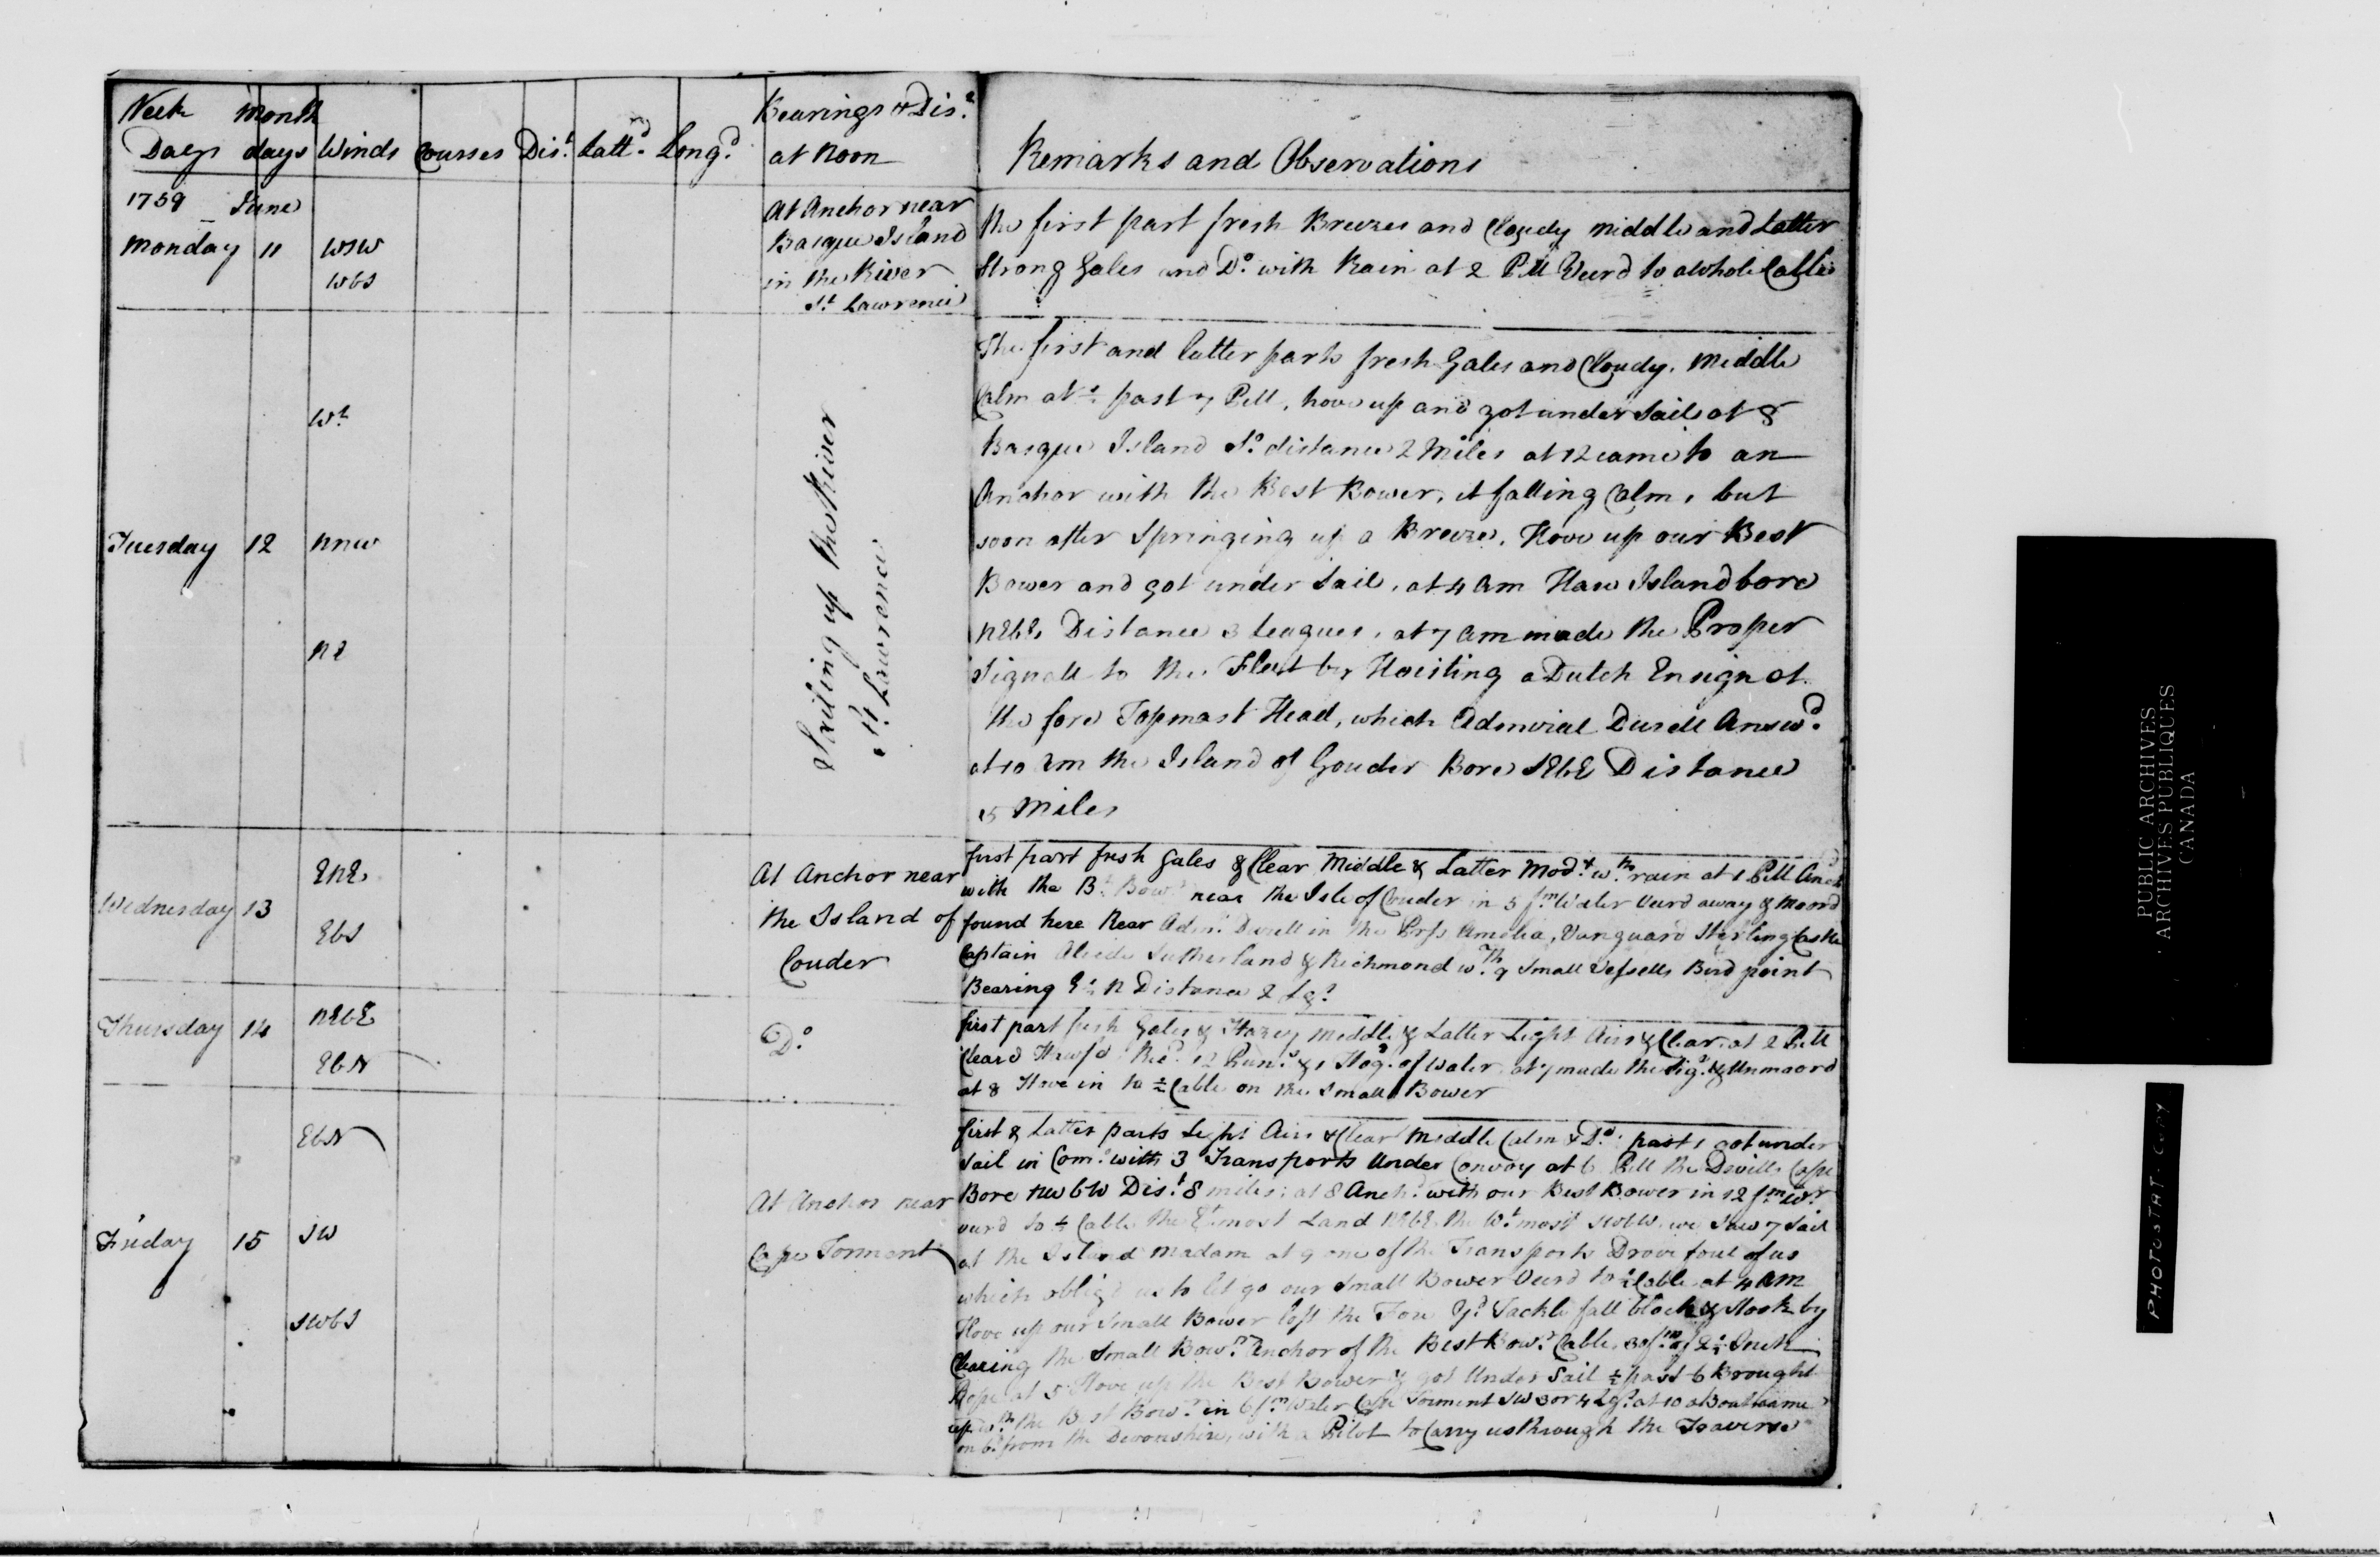 Week Month Bearings & Dis.ᵉ
Days days Winds Courses Dis.ᵗ Latt.ᵈ Long.ᵈ at Noon Remarks and Observations
1759 June
Monday 11 WSW
WbS
At Anchor near
Basque Island
in the River
S.ᵗ Lawrence
The first part fresh Breezes and Cloudy middle and Latter
Strong Gales and D.º with Rain at 2 PM Veerd to a whole Cable
Tuesday 12
W.ᵗ
NNW
NE
Sailing up the River
S.ᵗ Lawrence
The first and latter parts fresh Gales and Cloudy. Middle
Calm at ½ past 7 PM, hove up and got under Sail at 8
Basque Island S.º distance 2 Miles at 12 came to an
Anchor with the Best Bower, it falling Calm, but
soon after Springing up a Breeze, Hove up our Best
Bower and got under Sail, at 4 Am Hare Island bore
NEbE Distance 3 Leagues, at 7 am made the Proper
Signall to the Fleet by Hoisting a Dutch Ensign at
the fore Topmast Head, which Admiral Durell Answ.ᵈ
at 10 Am the Island of Gouder Bore SEbE Distance
15 Miles
Wednesday 13
ENE
EbS
At Anchor near
the Island of
Couder
first part fresh Gales & Clear Middle & Latter Mod.ᵗ w.ᵗʰ rain at 1 PM Anch
with the B.ᵗ Bow.ʳ near the Isle of Couder in 5 f.ᵐ Water Veerd away & Moord
found here Rear Adm.ˡ Durell in the Prss Amelia, Vanguard Sterling Castle
Captain Alcide Sutherland & Richmond w.ᵗʰ 9 Small Vessells Bird point
Bearing E½N Distance 2 Lg.ˢ
Thursday 14
NEbE
EbN
D.º
first part fresh Gales & Hazey middle & Latter Light Airs & Clear at 2 PM
Cleard Hawse Rec.ᵈ 12 Pun.ˢ & 1 Hog.ᵈ of Water at 7 made the Sig.ˡ & Unmoord
at 8 Hove in to ½ Cable on the Small Bower
Friday 15
EbN
SW
SWbS
At Anchor near
Cape Torment
first & Latter parts Light Airs & Clear Middle Calm & D.º past 1 got under
Sail in Com.ʸ with 3 Transports Under Convoy at 6 PM the Devills Cape
Bore NWbW Dis.ᵗ 8 miles: at 8 Anch.ᵈ with our Best Bower in 12 f.ᵐ W.ʳ
veerd to ½ Cable the E.ᵗmost Land NEbE the W.ᵗmost SWbW we Saw 7 Sail
at the Island Madam at 9 one of the Transports Drove foul of us
which oblig'd us to let go our Small Bower Veerd to ½ Cable at 4 AM
Hove up our Small Bower left the Fore Y.ᵈ Tackle fall block & Hook by
Clearing the Small Bow.ʳ Anchor of the Best Bow.ʳ Cable, 30 f.ᵐ of 2½ Inch
Rope at 5 Hove up the Best Bower & got Under Sail ½ past 6 Brought
up w.ᵗʰ the Best Bow.ʳ in 6 f.ᵐ Water Cape Torment SW 3 or 4 Lg.ˢ at 10 a Boat came
on b.ᵈ from the Devonshire, with a Pilot to Carry us through the Traverse
PUBLIC ARCHIVES
ARCHIVES PUBLIQUES
CANADA
PHOTOSTAT COPY